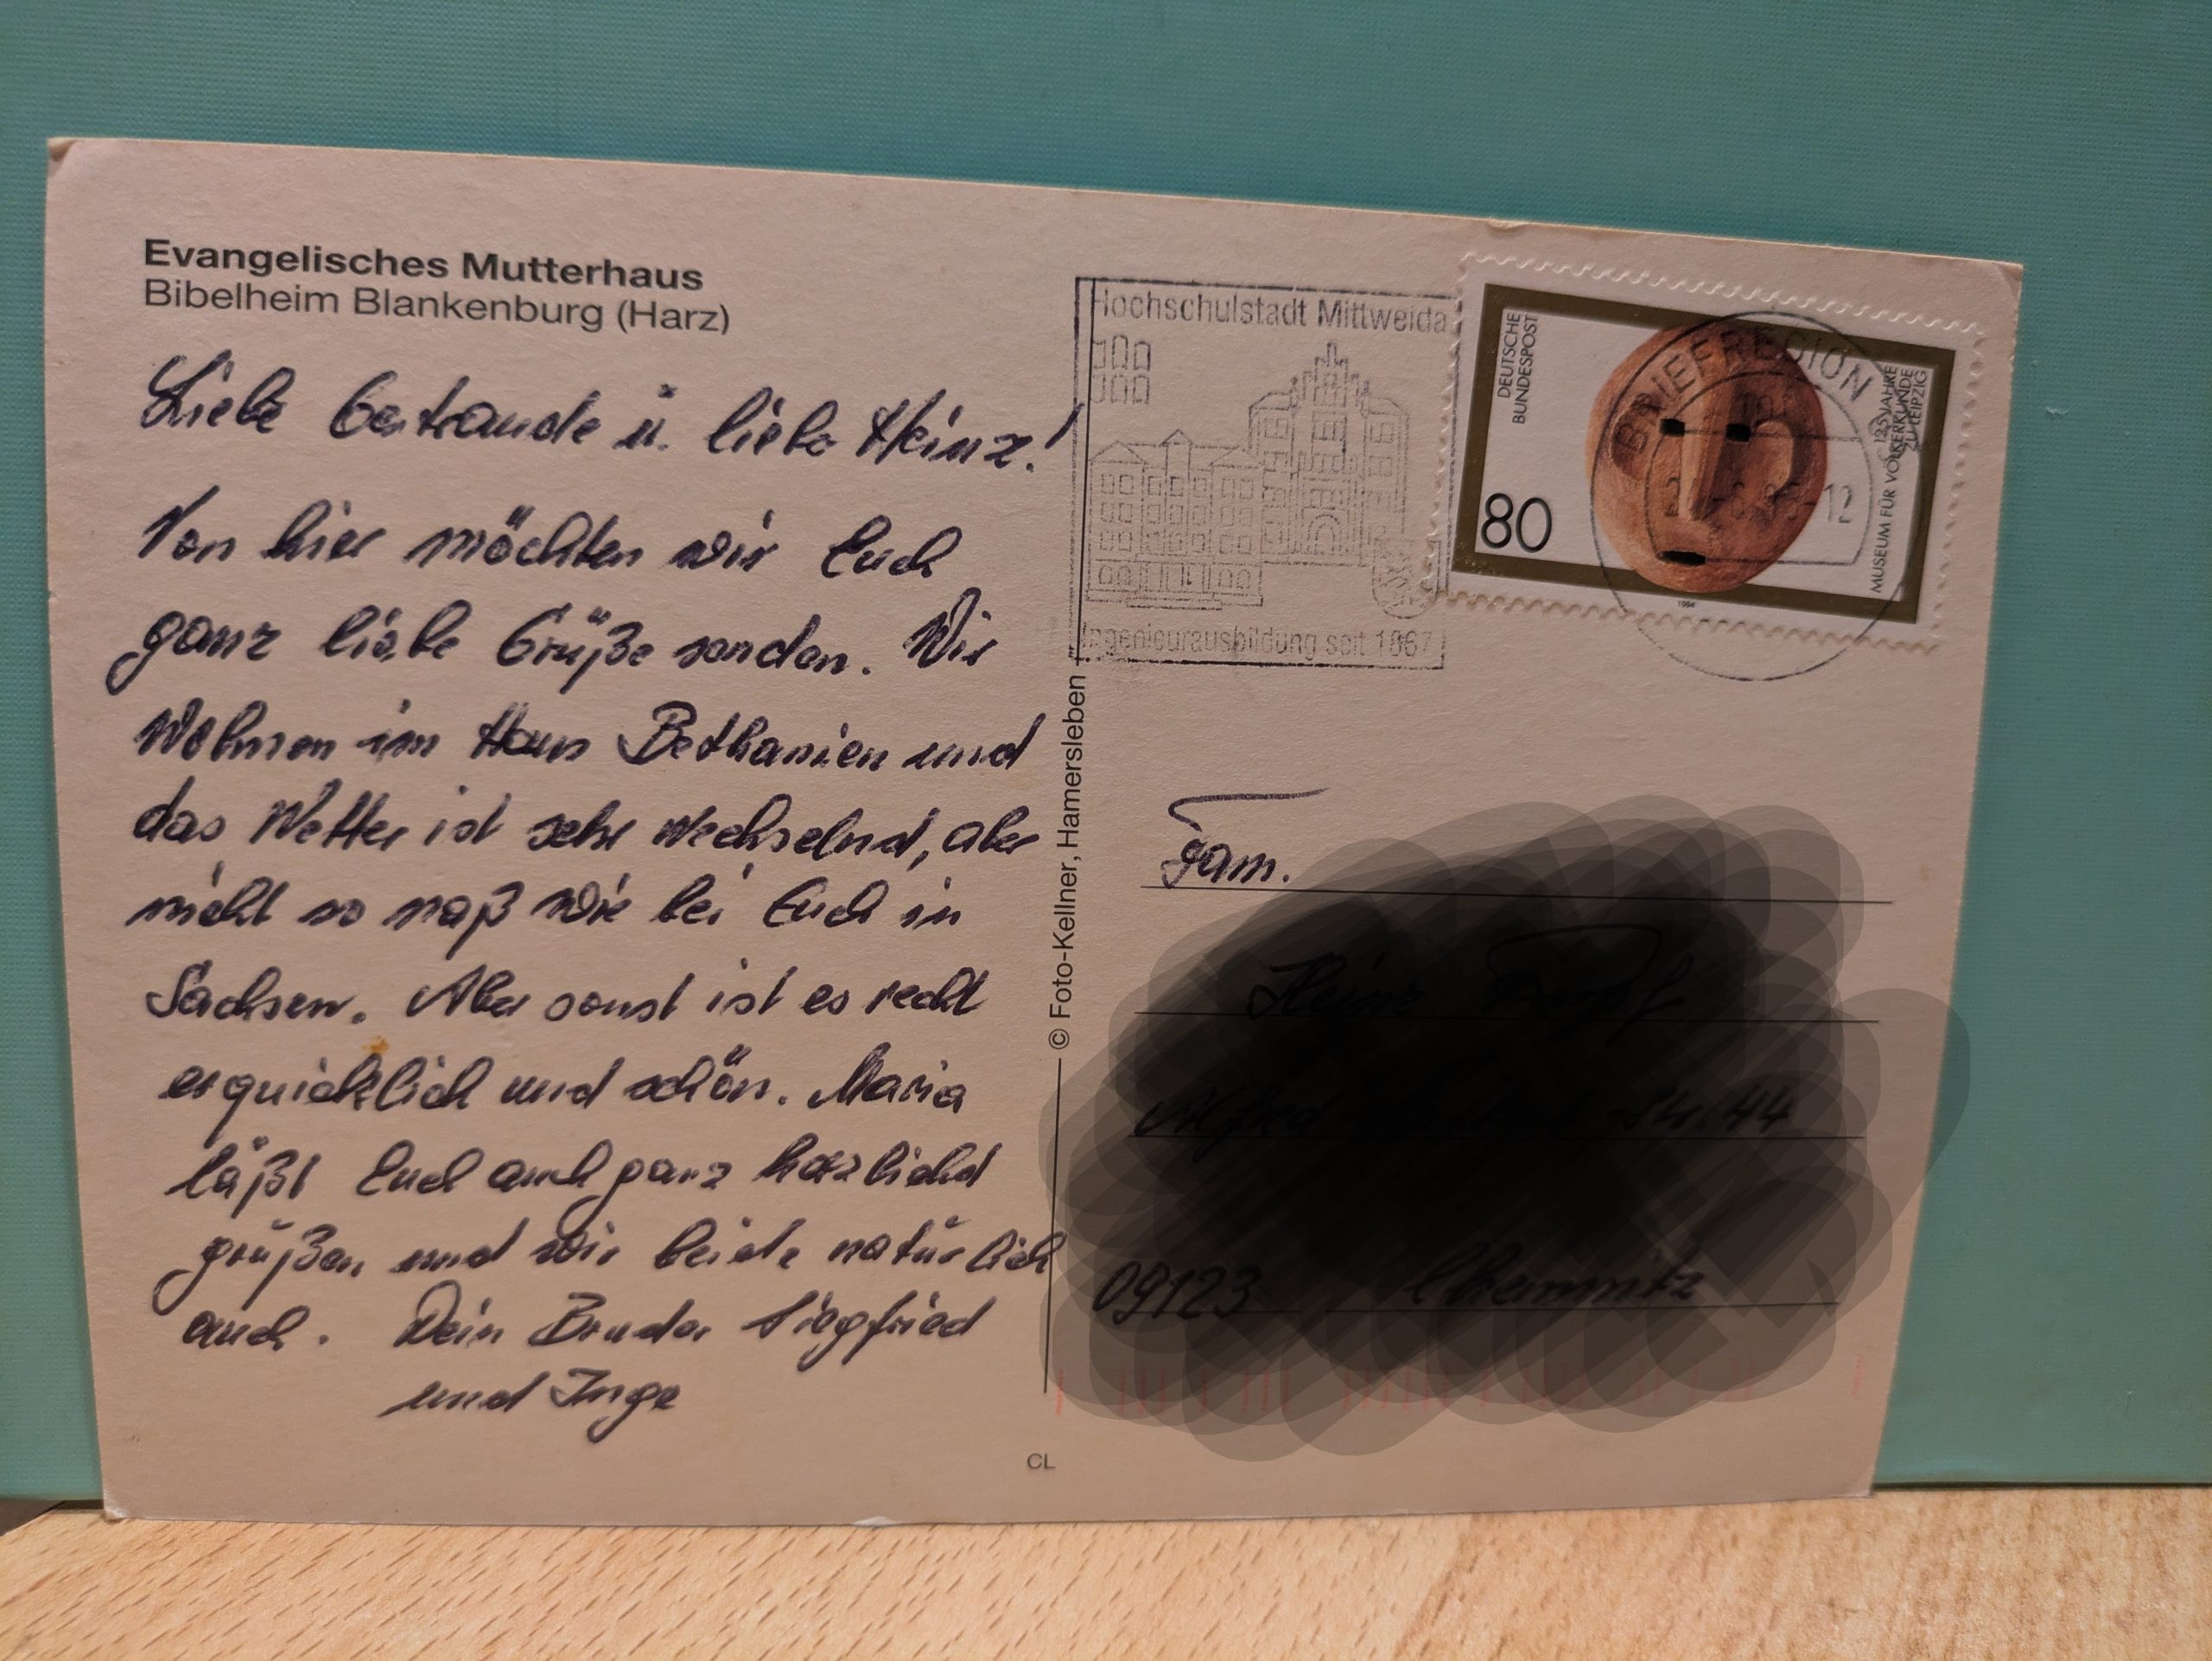 Evangelisches Mutterhaus
Bibelheim Blankenburg (Harz)
Liebe Gertraude u. lieber Heinz!
Von hier möchten wir Euch
ganz liebe Grüße senden. Wir
Wohnen im Haus Bethanien und
das Wetter ist sehr wechselnd, aber
nicht so naß wie bei Euch in
Sachsen. Aber sonst ist es recht
erquicklich und schön. Maria
läßt Euch auch ganz herzlichst
grüßen und wir beide natürlich
auch. Dein Bruder Siegfried
und Inge
© Foto-Kellner, Hamersleben
CL
Hochschulstadt Mittweida
Ingenieurausbildung seit 1867
DEUTSCHE
BUNDESPOST
80
125 JAHRE
MUSEUM FÜR VÖLKERKUNDE
ZU LEIPZIG
1994
BRIEFREGION
12
Fam.